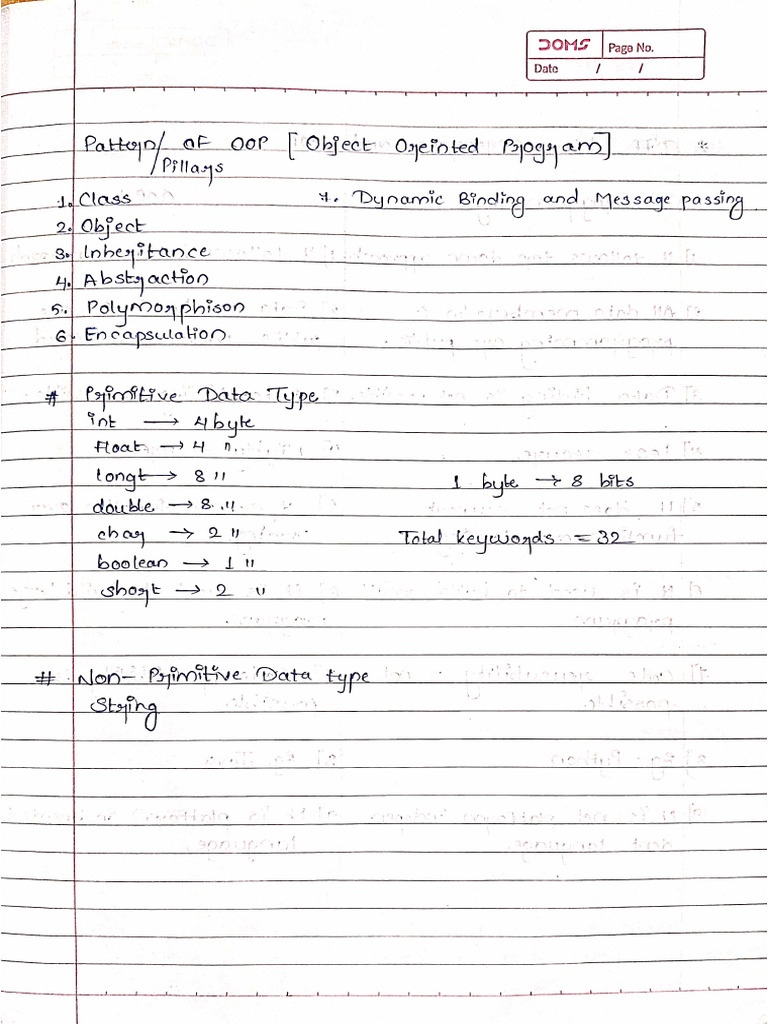 DOMS Page No.
Date / /
Pattern/ OF OOP [Object Oreinted Program]
/Pillars
1. Class 7. Dynamic Binding and Message passing
2. Object
3. Inheritance
4. Abstraction
5. Polymorphison
6. Encapsulation
# Primitive Data Type
int → 4 byte
float → 4 "
longt → 8 " 1 byte → 8 bits
double → 8 "
char → 2 " Total keywords = 32
boolean → 1 "
short → 2 "
# Non-Primitive Data type
String